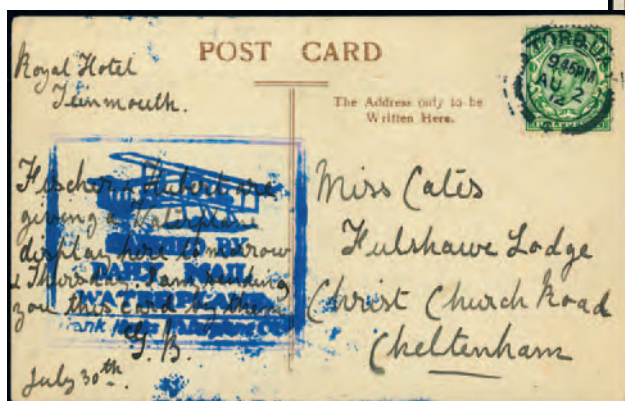 POST CARD
Royal Hotel
Teinmouth.
The Address only to be
Written Here.
TORQUAY
9.45PM
AU 2
12
HALFPENNY
Fischer & Hubert are
giving a Waterplane
display here tomorrow
& Thursday. I am sending
you this card by them
G. B.
July 30th.
CARRIED BY
DAILY MAIL
WATERPLANE
Miss Cates
Hulshawe Lodge
Christ Church Road
Cheltenham